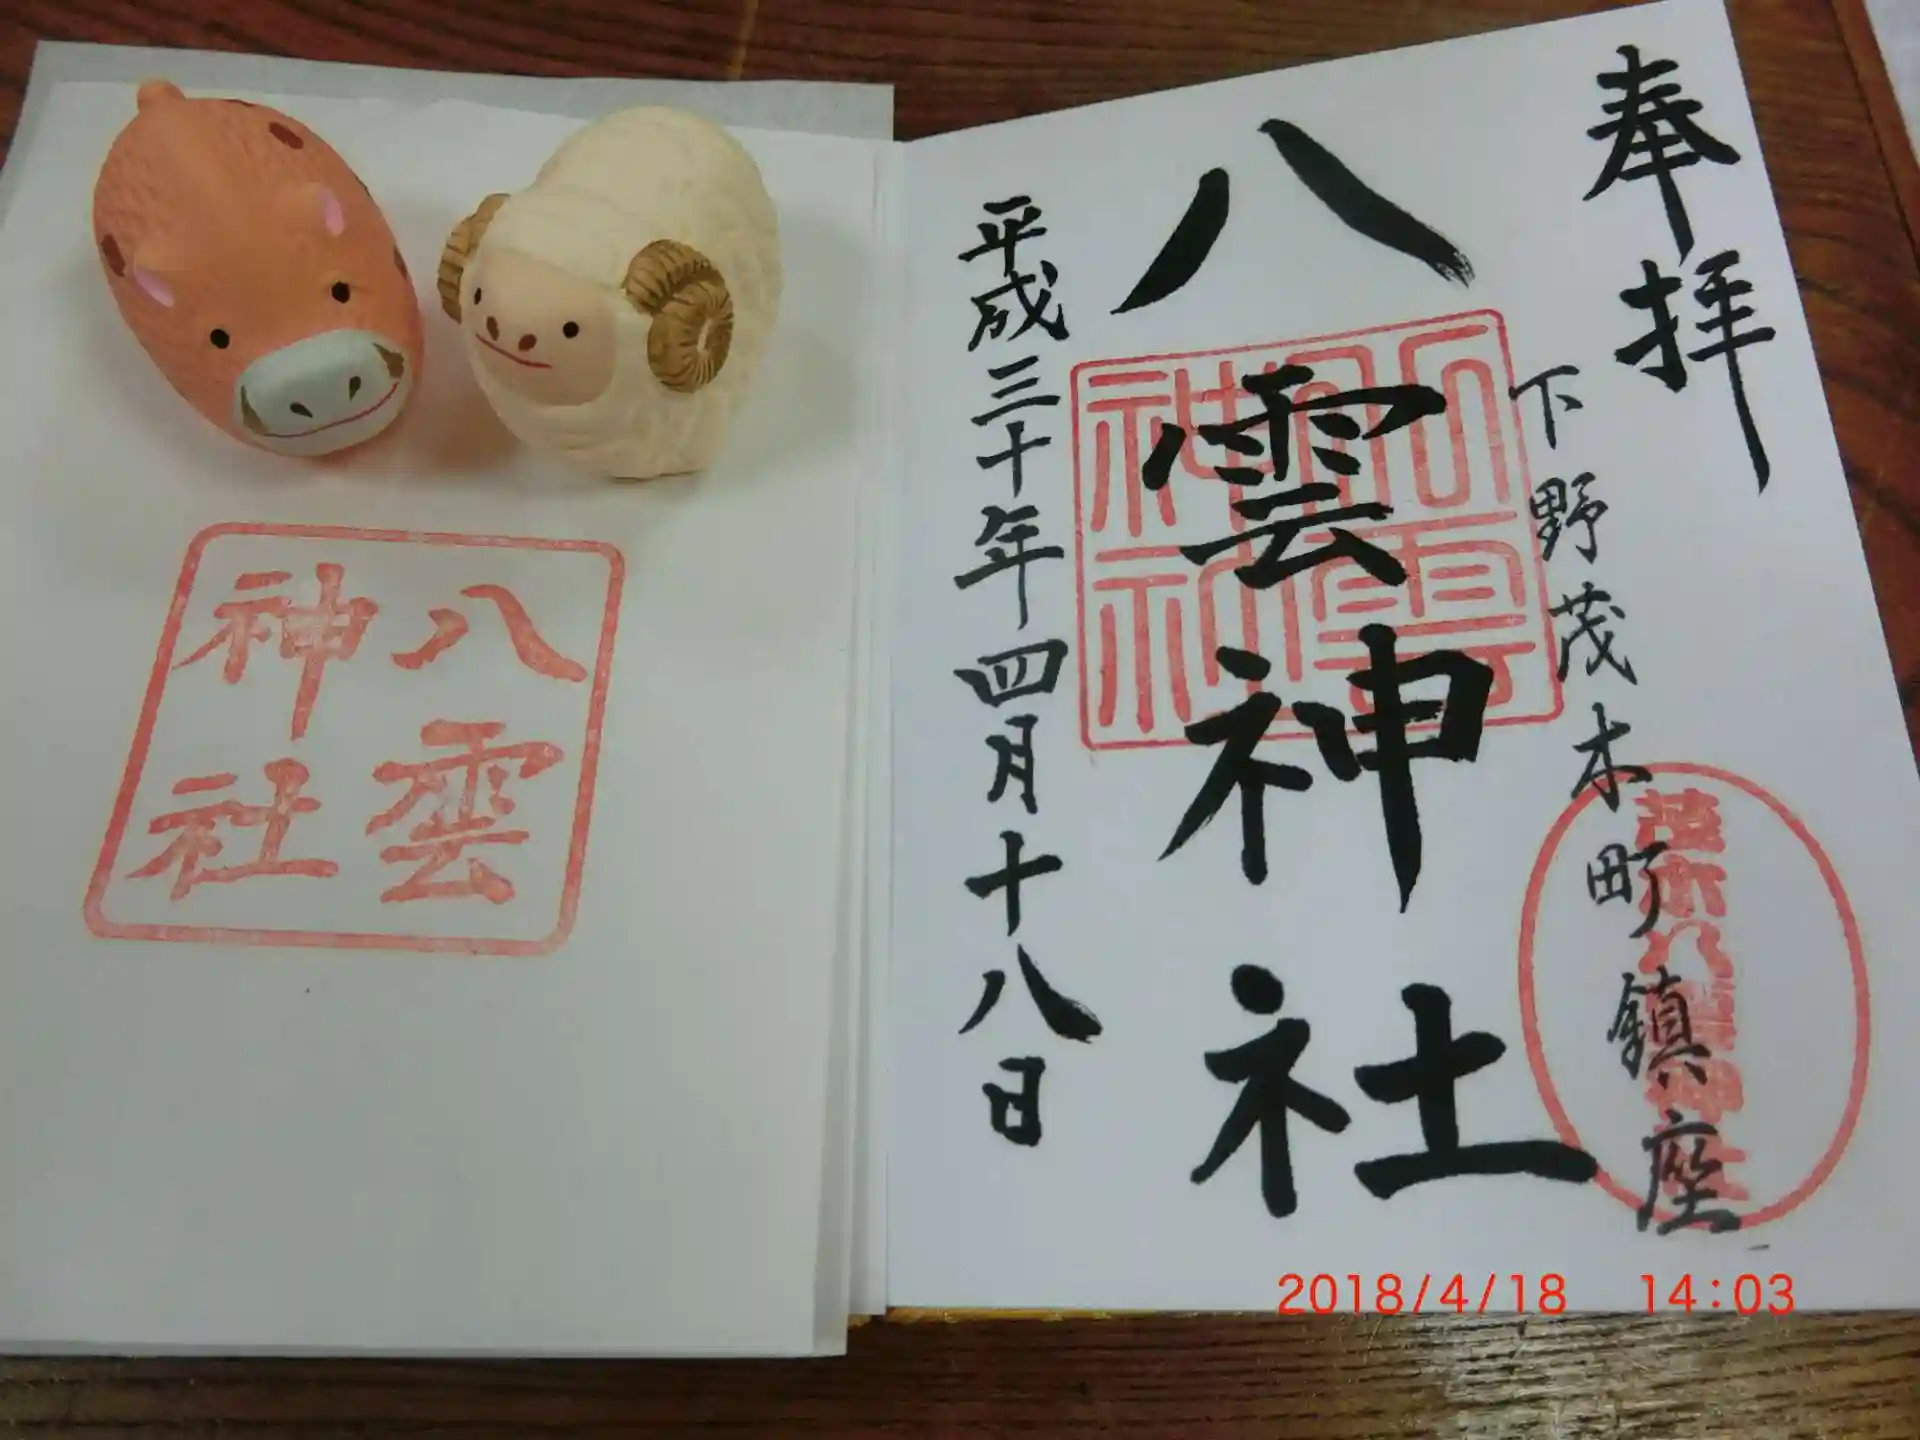 奉拝
下野茂木町鎮座
八雲神社
平成三十年四月十八日
八雲
神社
八雲
神社
2018/4/18 14:03